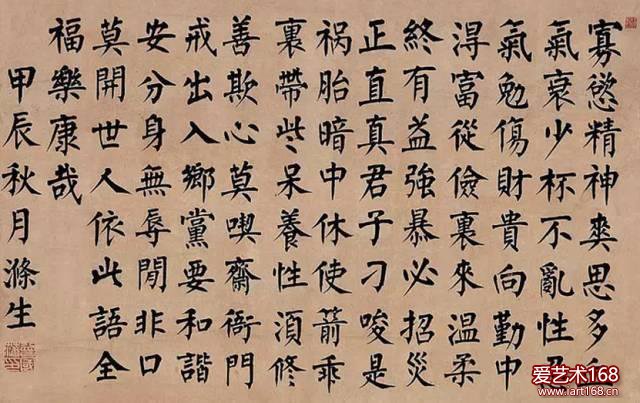 寡慾精神爽思多血
氣衰少杯不亂性忍
氣勉傷財貴向勤中
淂富從儉裏來温柔
終有益強暴必招災
正直真君子刁唆是
祸胎暗中休使箭乖
裏帶些呆養性湏修
善欺心莫喫齋衙門
戒出入鄉黨要和諧
安分身無辱閒非口
莫開世人依此語全
福樂康哉
甲辰秋月滌生
爱艺术168
www.iart168.com